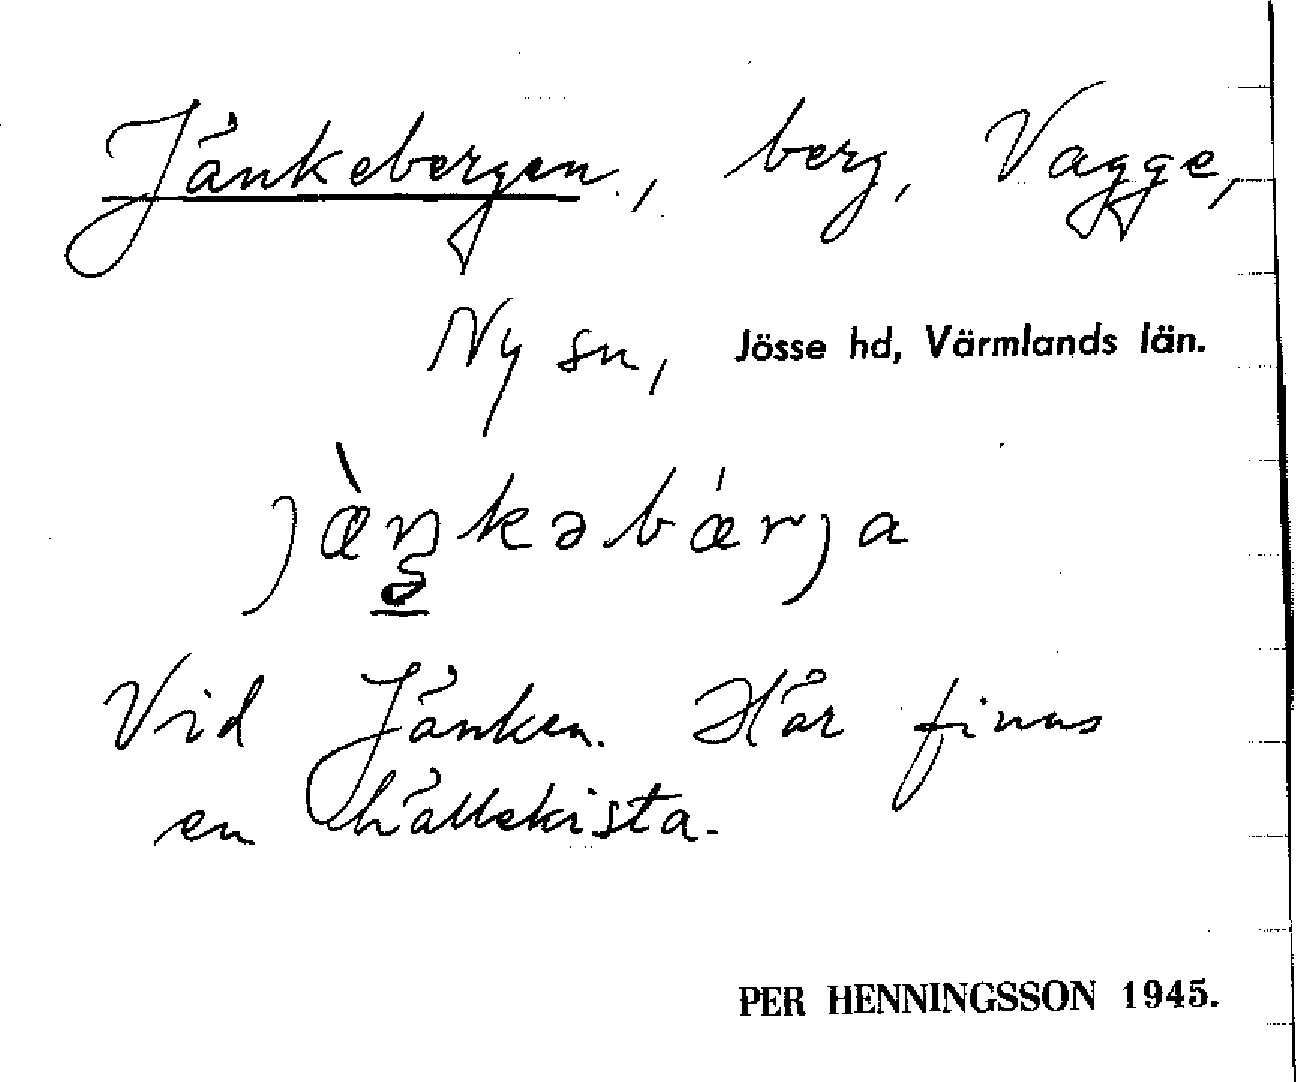 Jänkebergen, berg, Vagge,
Ny sn, Jösse hd, Värmlands län.
jæ̀ŋkəbǽrja
Vid Jänken. Här finns
en hällekista.
PER HENNINGSSON 1945.